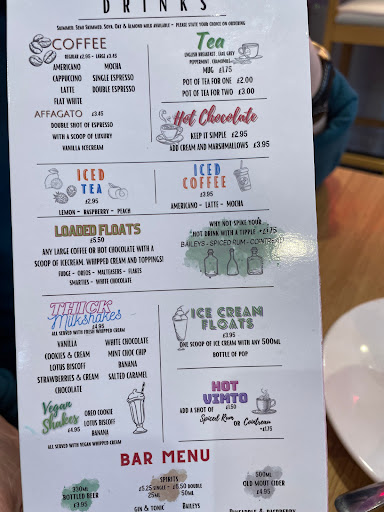 DRINKS
SKIMMED, SEMI SKIMMED, SOYA, OAT & ALMOND MILK AVAILABLE - PLEASE STATE YOUR CHOICE ON ORDERING
COFFEE
REGULAR £2.95 - LARGE £3.45
AMERICANO MOCHA
CAPPUCCINO SINGLE ESPRESSO
LATTE DOUBLE ESPRESSO
FLAT WHITE
AFFAGATO £3.45
DOUBLE SHOT OF ESPRESSO
WITH A SCOOP OF LUXURY
VANILLA ICECREAM
Tea
ENGLISH BREAKFAST, EARL GREY
PEPPERMINT, CHAMOMILE
MUG £1.75
POT OF TEA FOR ONE £2.00
POT OF TEA FOR TWO £3.00
Hot Chocolate
KEEP IT SIMPLE £2.95
ADD CREAM AND MARSHMALLOWS £3.95
ICED
TEA
£2.95
LEMON - RASPBERRY - PEACH
ICED
COFFEE
£3.95
AMERICANO - LATTE - MOCHA
LOADED FLOATS
£5.50
ANY LARGE COFFEE OR HOT CHOCOLATE WITH A
SCOOP OF ICECREAM, WHIPPED CREAM AND TOPPINGS!
FUDGE - OREOS - MALTEASERS - FLAKES
SMARTIES - WHITE CHOCOLATE
WHY NOT SPIKE YOUR
HOT DRINK WITH A TIPPLE +£1.75
BAILEYS - SPICED RUM - COINTREAU
THICK
Milkshakes
£4.95
ALL SERVED WITH FRESH WHIPPED CREAM
VANILLA WHITE CHOCOLATE
COOKIES & CREAM MINT CHOC CHIP
LOTUS BISCOFF BANANA
STRAWBERRIES & CREAM SALTED CARAMEL
CHOCOLATE
ICE CREAM
FLOATS
£3.95
ONE SCOOP OF ICE CREAM WITH ANY 500ML
BOTTLE OF POP
Vegan
Shakes
£4.95
OREO COOKIE
LOTUS BISCOFF
BANANA
ALL SERVED WITH VEGAN WHIPPED CREAM
HOT
VIMTO
£1.50
ADD A SHOT OF
Spiced Rum OR Cointreau
+£1.75
BAR MENU
330ML
BOTTLED BEER
£3.95
SPIRITS
£5.25 SINGLE - £6.50 DOUBLE
25ML 50ML
GIN & TONIC BAILEYS
500ML
OLD MOUT CIDER
£4.95
PINEAPPLE & RASPBERRY